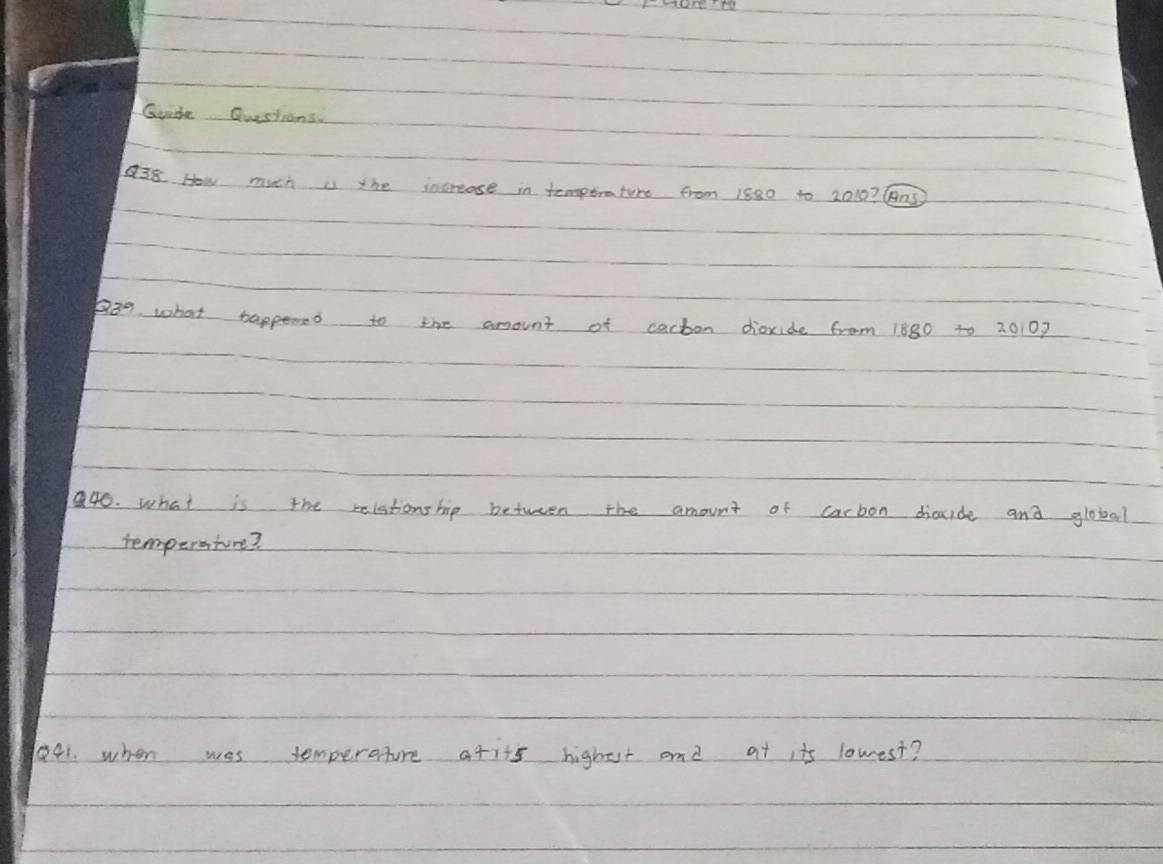 Guide Questions:
Q38. How much is the increase in temperature from 1880 to 2010? Ans
Q39. what happened to the amount of carbon dioxide from 1880 to 2010?
Q40. what is the relationship between the amount of carbon dioxide and global
temperature?
Q41. when was temperature at it's highest and at its lowest?